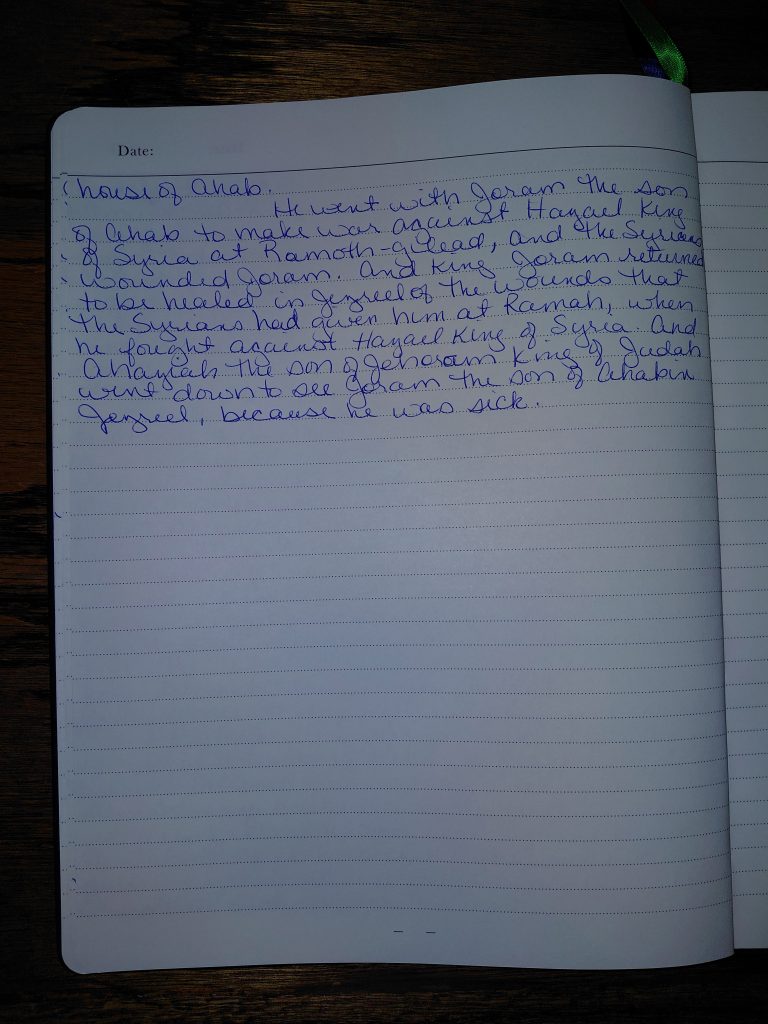 Date:
house of Ahab.
He went with Joram the son
of Ahab to make war against Hazael King
of Syria at Ramoth-gilead, and the Syrians
wounded Joram. And King Joram returned
to be healed in Jezreel of the wounds that
the Syrians had given him at Ramah, when
he fought against Hazael King of Syria. And
Ahaziah the son of Jehoram King of Judah
went down to see Joram the son of Ahab in
Jezreel, because he was sick.